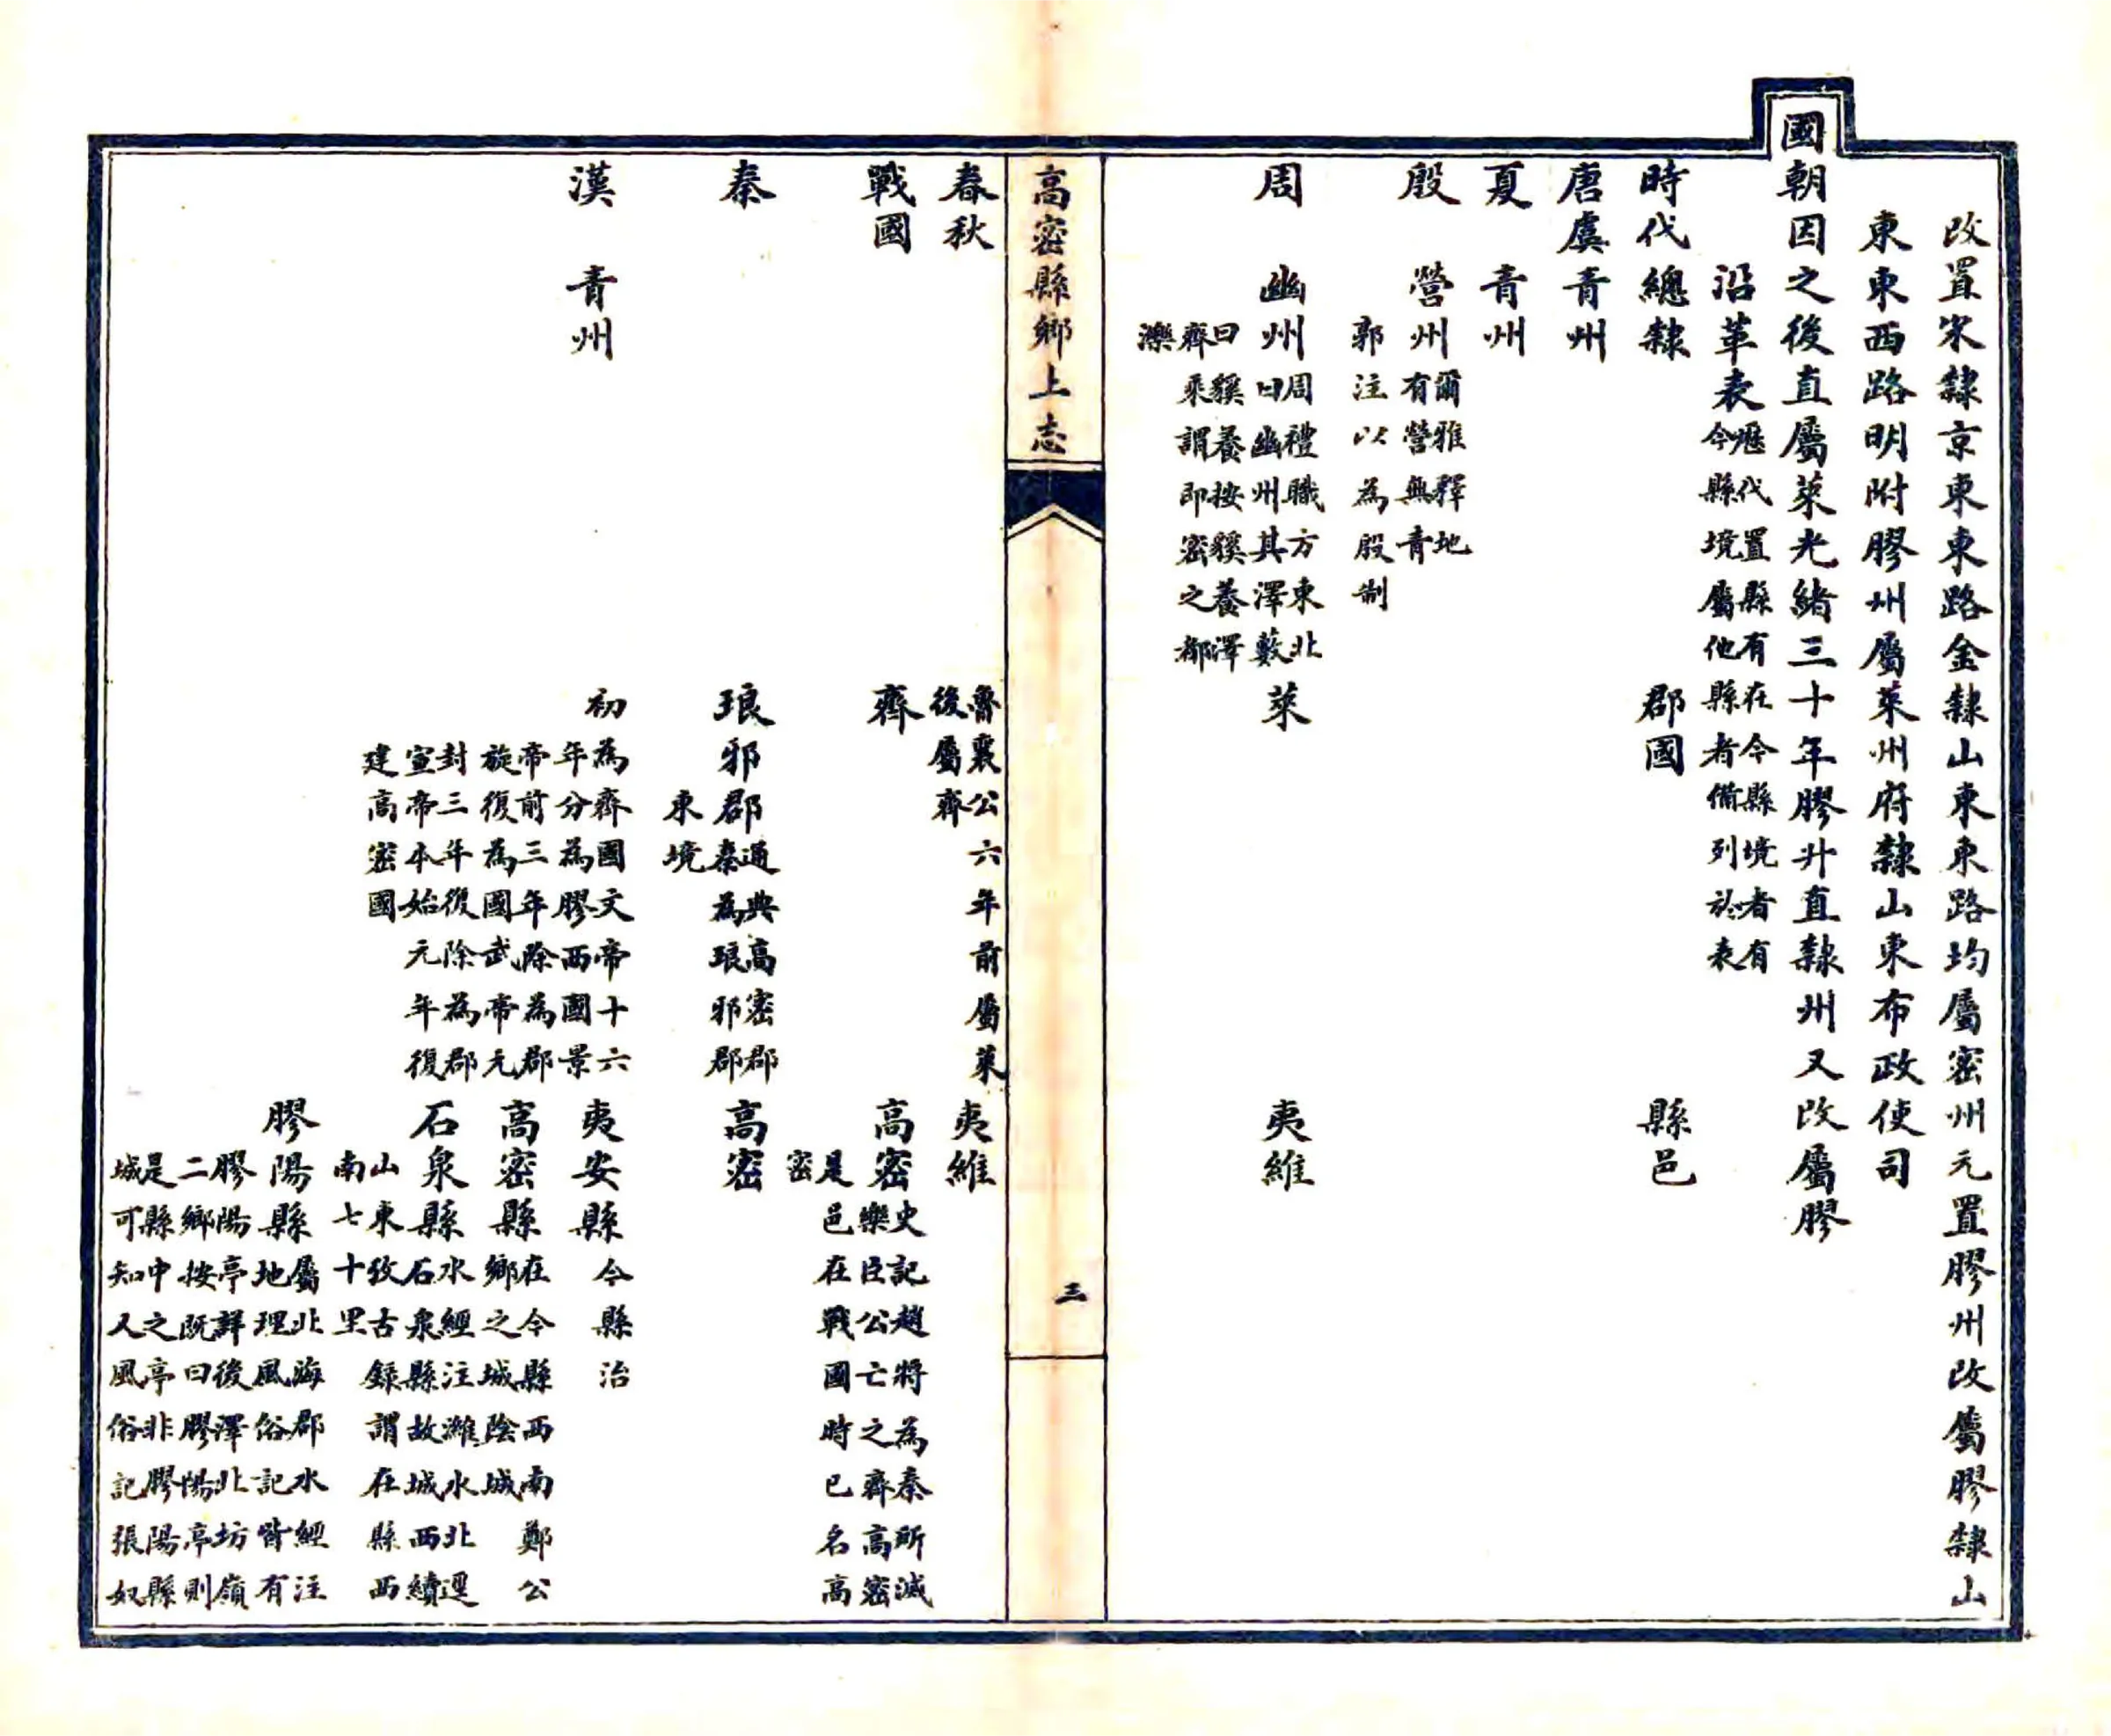 改置宋隸京東東路金隸山東東路均屬密州元置膠州改屬膠隸山
東東西路明附膠州屬萊州府隸山東布政使司
國朝因之後直屬萊光緒三十年膠升直隸州又改屬膠
沿革表歷代置縣有在今縣境者有
今縣境屬他縣者備列於表
時代總隸 郡國 縣邑
唐虞青州
夏 青州
殷 營州爾雅釋地
有營無青
郭注以為殷制
周 幽州周禮職方東北
曰幽州其澤藪
曰貕養按貕養澤
齊乘謂即密之都
濼
萊 夷維
高密縣鄉土志
三
春秋 魯襄公六年前屬萊
後屬齊
夷維
戰國 齊 高密史記趙將為秦所滅
樂臣公亡之齊高密
是邑在戰國時已名高
密
秦 琅邪郡通典高密郡
秦為琅邪郡
東境
高密
漢 青州
初為齊國文帝十六
年分為膠西國景
帝前三年除為郡
旋復為國武帝元
封三年復除為郡
宣帝本始元年復
建高密國
夷安縣今縣治
高密縣在今縣西南鄭公
鄉之城陰城
石泉縣水經注濰水北逕
石泉縣故城西續
山東攷古錄謂在縣西
南七十里
膠陽縣屬北海郡水經注
地理風俗記皆有
膠陽亭詳後澤北坊嶺
二鄉按既曰膠陽亭則
是縣中之亭非膠陽縣
城可知又風俗記張奴